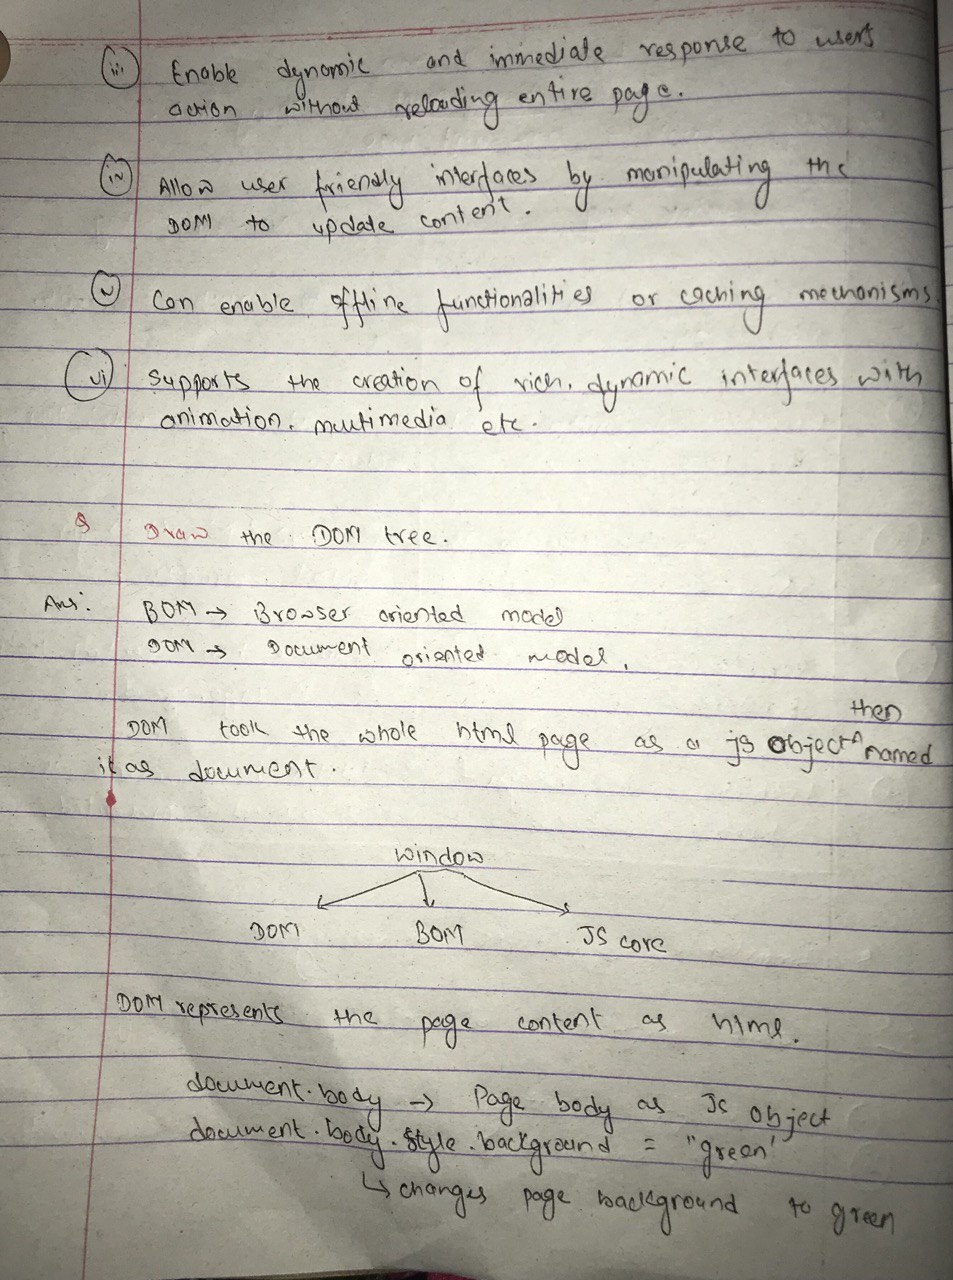 (iii) Enable dynamic and immediate response to users
action without reloading entire page.
(iv) Allow user friendly interfaces by manipulating the
DOM to update content.
(v) Can enable offline functionalities or caching mechanisms.
(vi) Supports the creation of rich, dynamic interfaces with
animation, multimedia etc.
Q Draw the DOM tree.
Ans: BOM → Browser oriented model
DOM → Document oriented model.
then
DOM took the whole html page as a js object^ named
it as document.
window
DOM BOM JS core
DOM represents the page content as html.
document.body → Page body as JS object
document.body.style.background = "green'
↳ changes page background to green